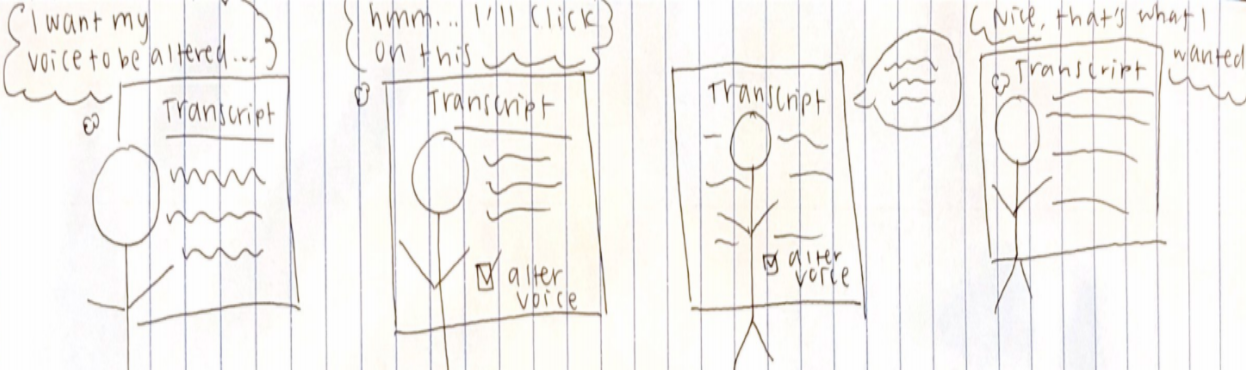 I want my
voice to be altered...
Transcript
hmm... I'll click
on this
Transcript
alter
voice
Transcript
alter
voice
Nice, that's what I
wanted
Transcript